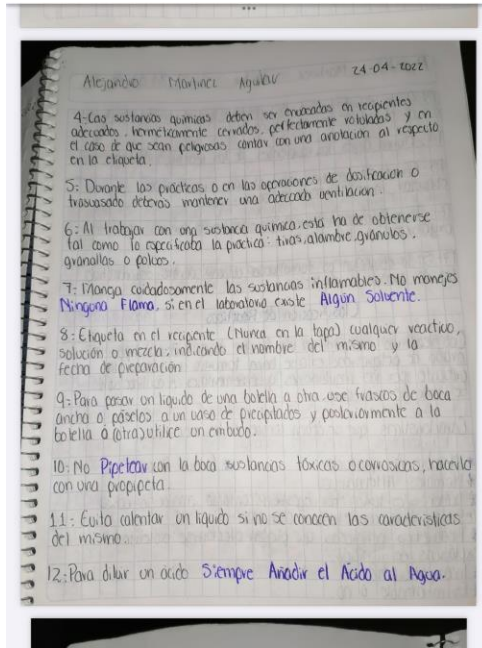 Alejandro Martinez Aguilar 24-04-2022
4-Las sustancias quimicas deben ser envasadas en recipientes
adecuados, hermeticamente cerrados, perfectamente rotulados y en
el caso de que sean peligrosas contar con una anotacion al respecto
en la etiqueta.
5: Durante las practicas o en las operaciones de dosificacion o
trasvasado deberas mantener una adecuada ventilacion.
6: Al trabajar con una sustancia quimica, esta ha de obtenerse
tal como lo especificaba la practica: tiras, alambre, granulos,
granallas o polvos.
7: Maneja cuidadosamente las sustancias inflamables. No manejes
Ninguna Flama, si en el laboratorio existe Algun Solvente.
8: Etiqueta en el recipente (Nunca en la tapa) cualquier reactivo,
solución o mezcla, indicando el nombre del mismo y la
fecha de preparación
9-Para pasar un liquido de una botella a otra use frascos de boca
ancha o páselos a un vaso de precipitados y posteriormente a la
botella a (otra) utilice un embudo.
10: No Pipetear con la boca sustancias tóxicas o corrosivas, hacerlo
con una propipeta.
11: Evita calentar un liquido si no se conocen las caracteristicas
del mismo.
12: Para diluir un acido Siempre Añadir el Acido al Agua.